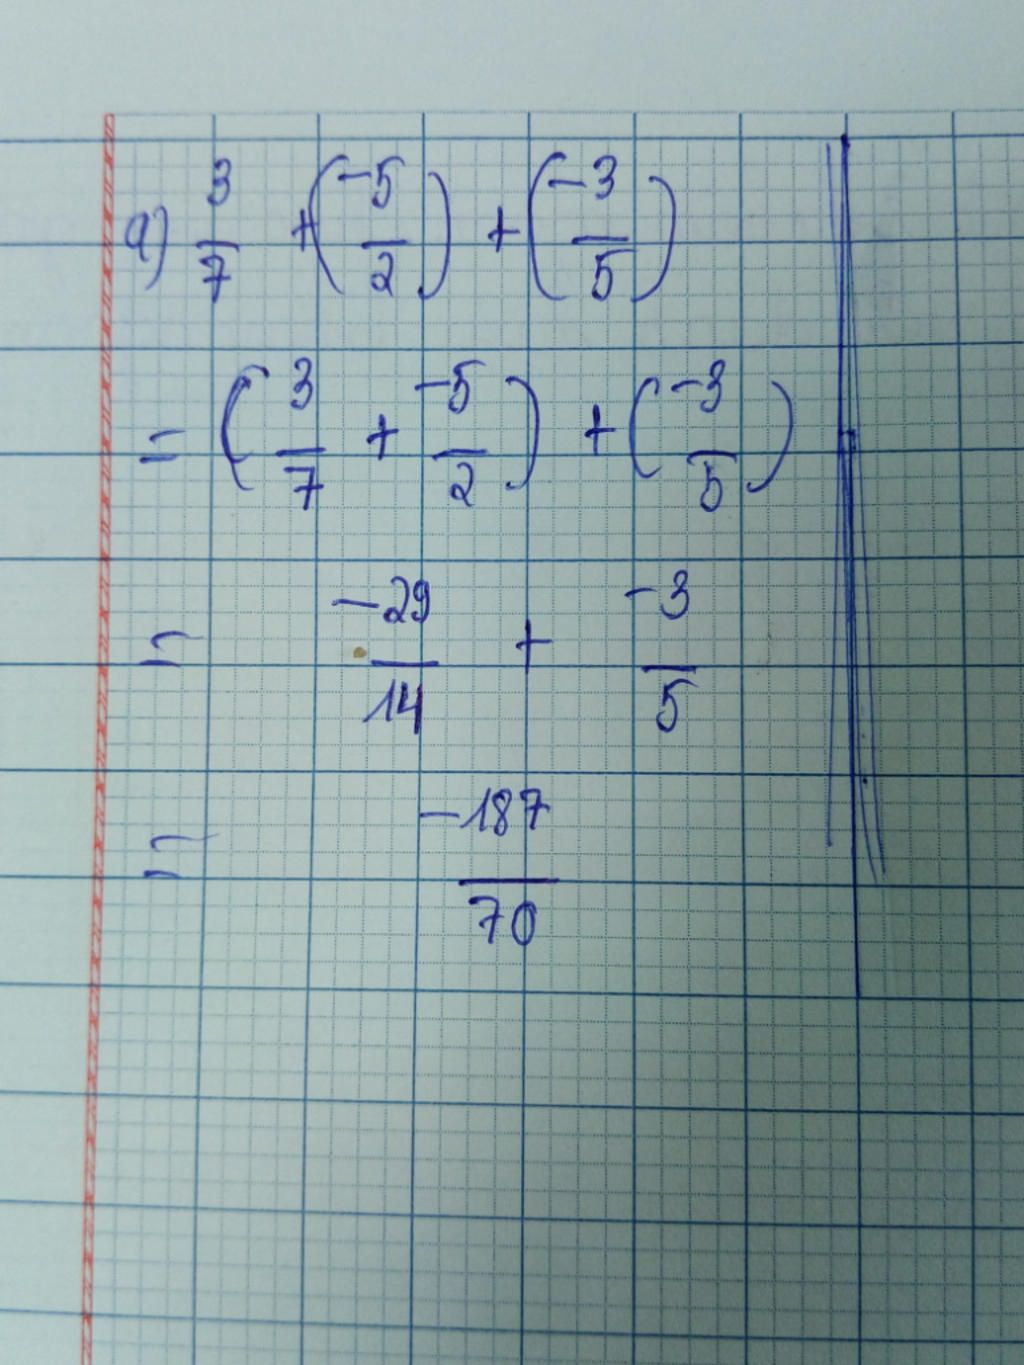 a) 3/7 + (-5/2) + (-3/5)
= (3/7 + -5/2) + (-3/5)
= -29/14 + -3/5
= -187/70